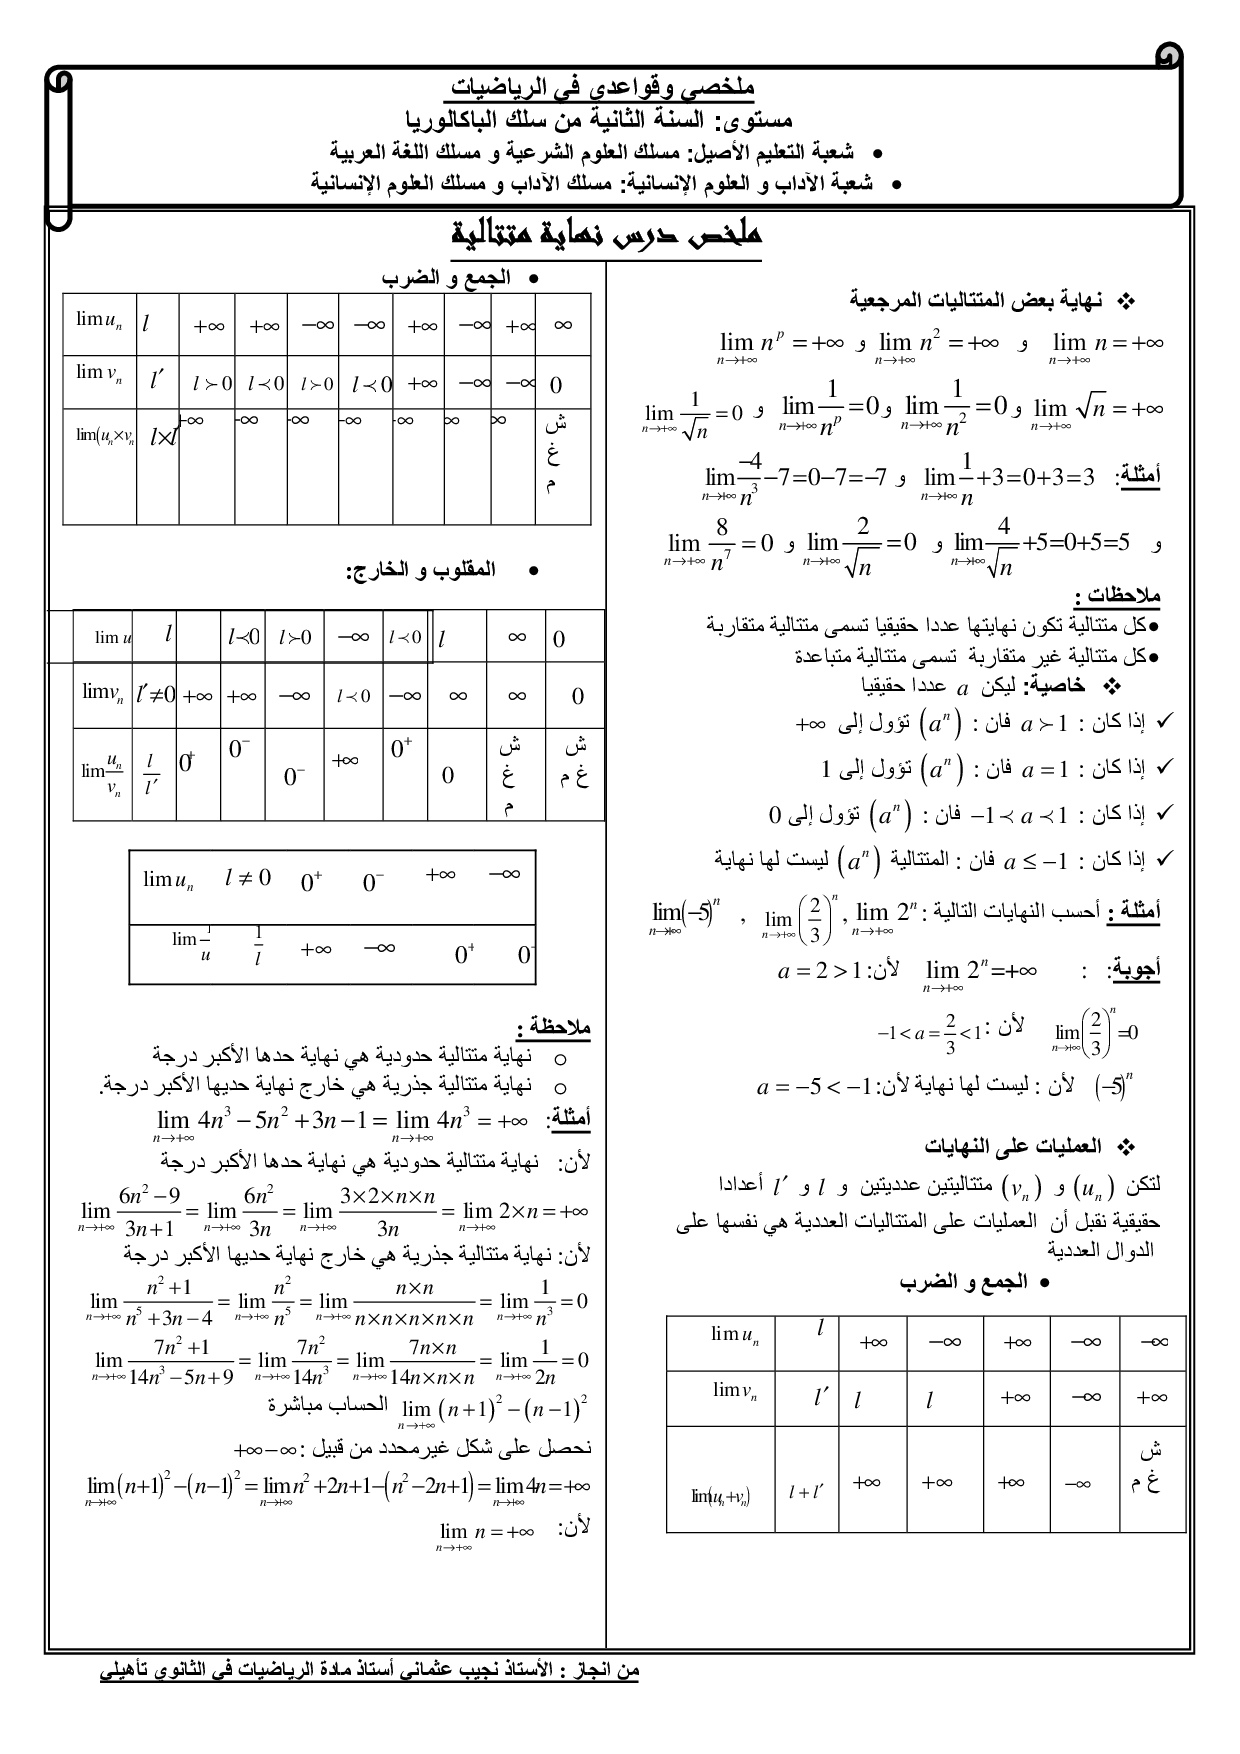 ملخصي وقواعدي في الرياضيات
مستوى: السنة الثانية من سلك الباكالوريا
• شعبة التعليم الأصيل: مسلك العلوم الشرعية و مسلك اللغة العربية
• شعبة الآداب و العلوم الإنسانية: مسلك الآداب و مسلك العلوم الإنسانية
ملخص درس نهاية متتالية
❖ نهاية بعض المتتاليات المرجعية
lim n→+∞ n = +∞ و lim n→+∞ n² = +∞ و lim n→+∞ n^p = +∞
lim n→+∞ √n = +∞ و lim n→+∞ 1/n² = 0 و lim n→+∞ 1/n^p = 0 و lim n→+∞ 1/√n = 0
أمثلة: lim n→+∞ 1/n + 3 = 0 + 3 = 3 و lim n→+∞ −4/n³ − 7 = 0 − 7 = −7
و lim n→+∞ 4/√n + 5 = 0 + 5 = 5 و lim n→+∞ 2/√n = 0 و lim n→+∞ 8/n⁷ = 0
ملاحظات :
•كل متتالية تكون نهايتها عددا حقيقيا تسمى متتالية متقاربة
•كل متتالية غير متقاربة تسمى متتالية متباعدة
❖ خاصية: ليكن a عددا حقيقيا
✓ إذا كان : a ≻ 1 فان : (aⁿ) تؤول إلى +∞
✓ إذا كان : a = 1 فان : (aⁿ) تؤول إلى 1
✓ إذا كان : −1 ≺ a ≺ 1 فان : (aⁿ) تؤول إلى 0
✓ إذا كان : a ≤ −1 فان : المتتالية (aⁿ) ليست لها نهاية
أمثلة : أحسب النهايات التالية : lim n→+∞ 2ⁿ , lim n→+∞ (2/3)ⁿ , lim n→+∞ (−5)ⁿ
أجوبة: : lim n→+∞ 2ⁿ = +∞ لأن: a = 2 > 1
lim n→+∞ (2/3)ⁿ = 0 لأن : −1 < a = 2/3 < 1
(−5)ⁿ لأن : ليست لها نهاية لأن: a = −5 < −1
❖ العمليات على النهايات
لتكن (uₙ) و (vₙ) متتاليتين عدديتين و l و l′ أعدادا
حقيقية نقبل أن العمليات على المتتاليات العددية هي نفسها على
الدوال العددية
• الجمع و الضرب
lim uₙ l +∞ −∞ +∞ −∞ −∞
lim vₙ l′ l l +∞ −∞ +∞
lim(uₙ+vₙ) l + l′ +∞ +∞ +∞ −∞ ش غ م
• الجمع و الضرب
lim uₙ l +∞ +∞ −∞ −∞ +∞ −∞ +∞ ∞
lim vₙ l′ l ≻ 0 l ≺ 0 l ≻ 0 l ≺ 0 +∞ −∞ −∞ 0
lim(uₙ×vₙ l×l′ +∞ -∞ -∞ -∞ -∞ ∞ ∞ ش غ م
• المقلوب و الخارج:
lim u l l≺0 l≻0 −∞ l ≺ 0 l ∞ 0
lim vₙ l′≠0 +∞ +∞ −∞ l ≺ 0 −∞ ∞ ∞ 0
lim uₙ/vₙ l/l′ 0⁺ 0⁻ 0⁻ +∞ 0⁺ 0 ش غ م ش غ م
lim uₙ l ≠ 0 0⁺ 0⁻ +∞ −∞
lim 1/u 1/l +∞ −∞ 0⁺ 0⁻
ملاحظة :
o نهاية متتالية حدودية هي نهاية حدها الأكبر درجة
o نهاية متتالية جذرية هي خارج نهاية حديها الأكبر درجة.
أمثلة: lim n→+∞ 4n³ − 5n² + 3n − 1 = lim n→+∞ 4n³ = +∞
لأن: نهاية متتالية حدودية هي نهاية حدها الأكبر درجة
lim n→+∞ (6n² − 9)/(3n + 1) = lim n→+∞ 6n²/3n = lim n→+∞ (3×2×n×n)/3n = lim n→+∞ 2×n = +∞
لأن: نهاية متتالية جذرية هي خارج نهاية حديها الأكبر درجة
lim n→+∞ (n² + 1)/(n⁵ + 3n − 4) = lim n→+∞ n²/n⁵ = lim n→+∞ (n×n)/(n×n×n×n×n) = lim n→+∞ 1/n³ = 0
lim n→+∞ (7n² + 1)/(14n³ − 5n + 9) = lim n→+∞ 7n²/14n³ = lim n→+∞ (7n×n)/(14n×n×n) = lim n→+∞ 1/2n = 0
lim n→+∞ (n + 1)² − (n − 1)² الحساب مباشرة
نحصل على شكل غيرمحدد من قبيل : +∞ − ∞
lim n→+∞ (n+1)² − (n−1)² = lim n→+∞ n² + 2n + 1 − (n² − 2n + 1) = lim n→+∞ 4n = +∞
لأن: lim n→+∞ n = +∞
من انجاز : الأستاذ نجيب عثماني أستاذ مادة الرياضيات في الثانوي تأهيلي